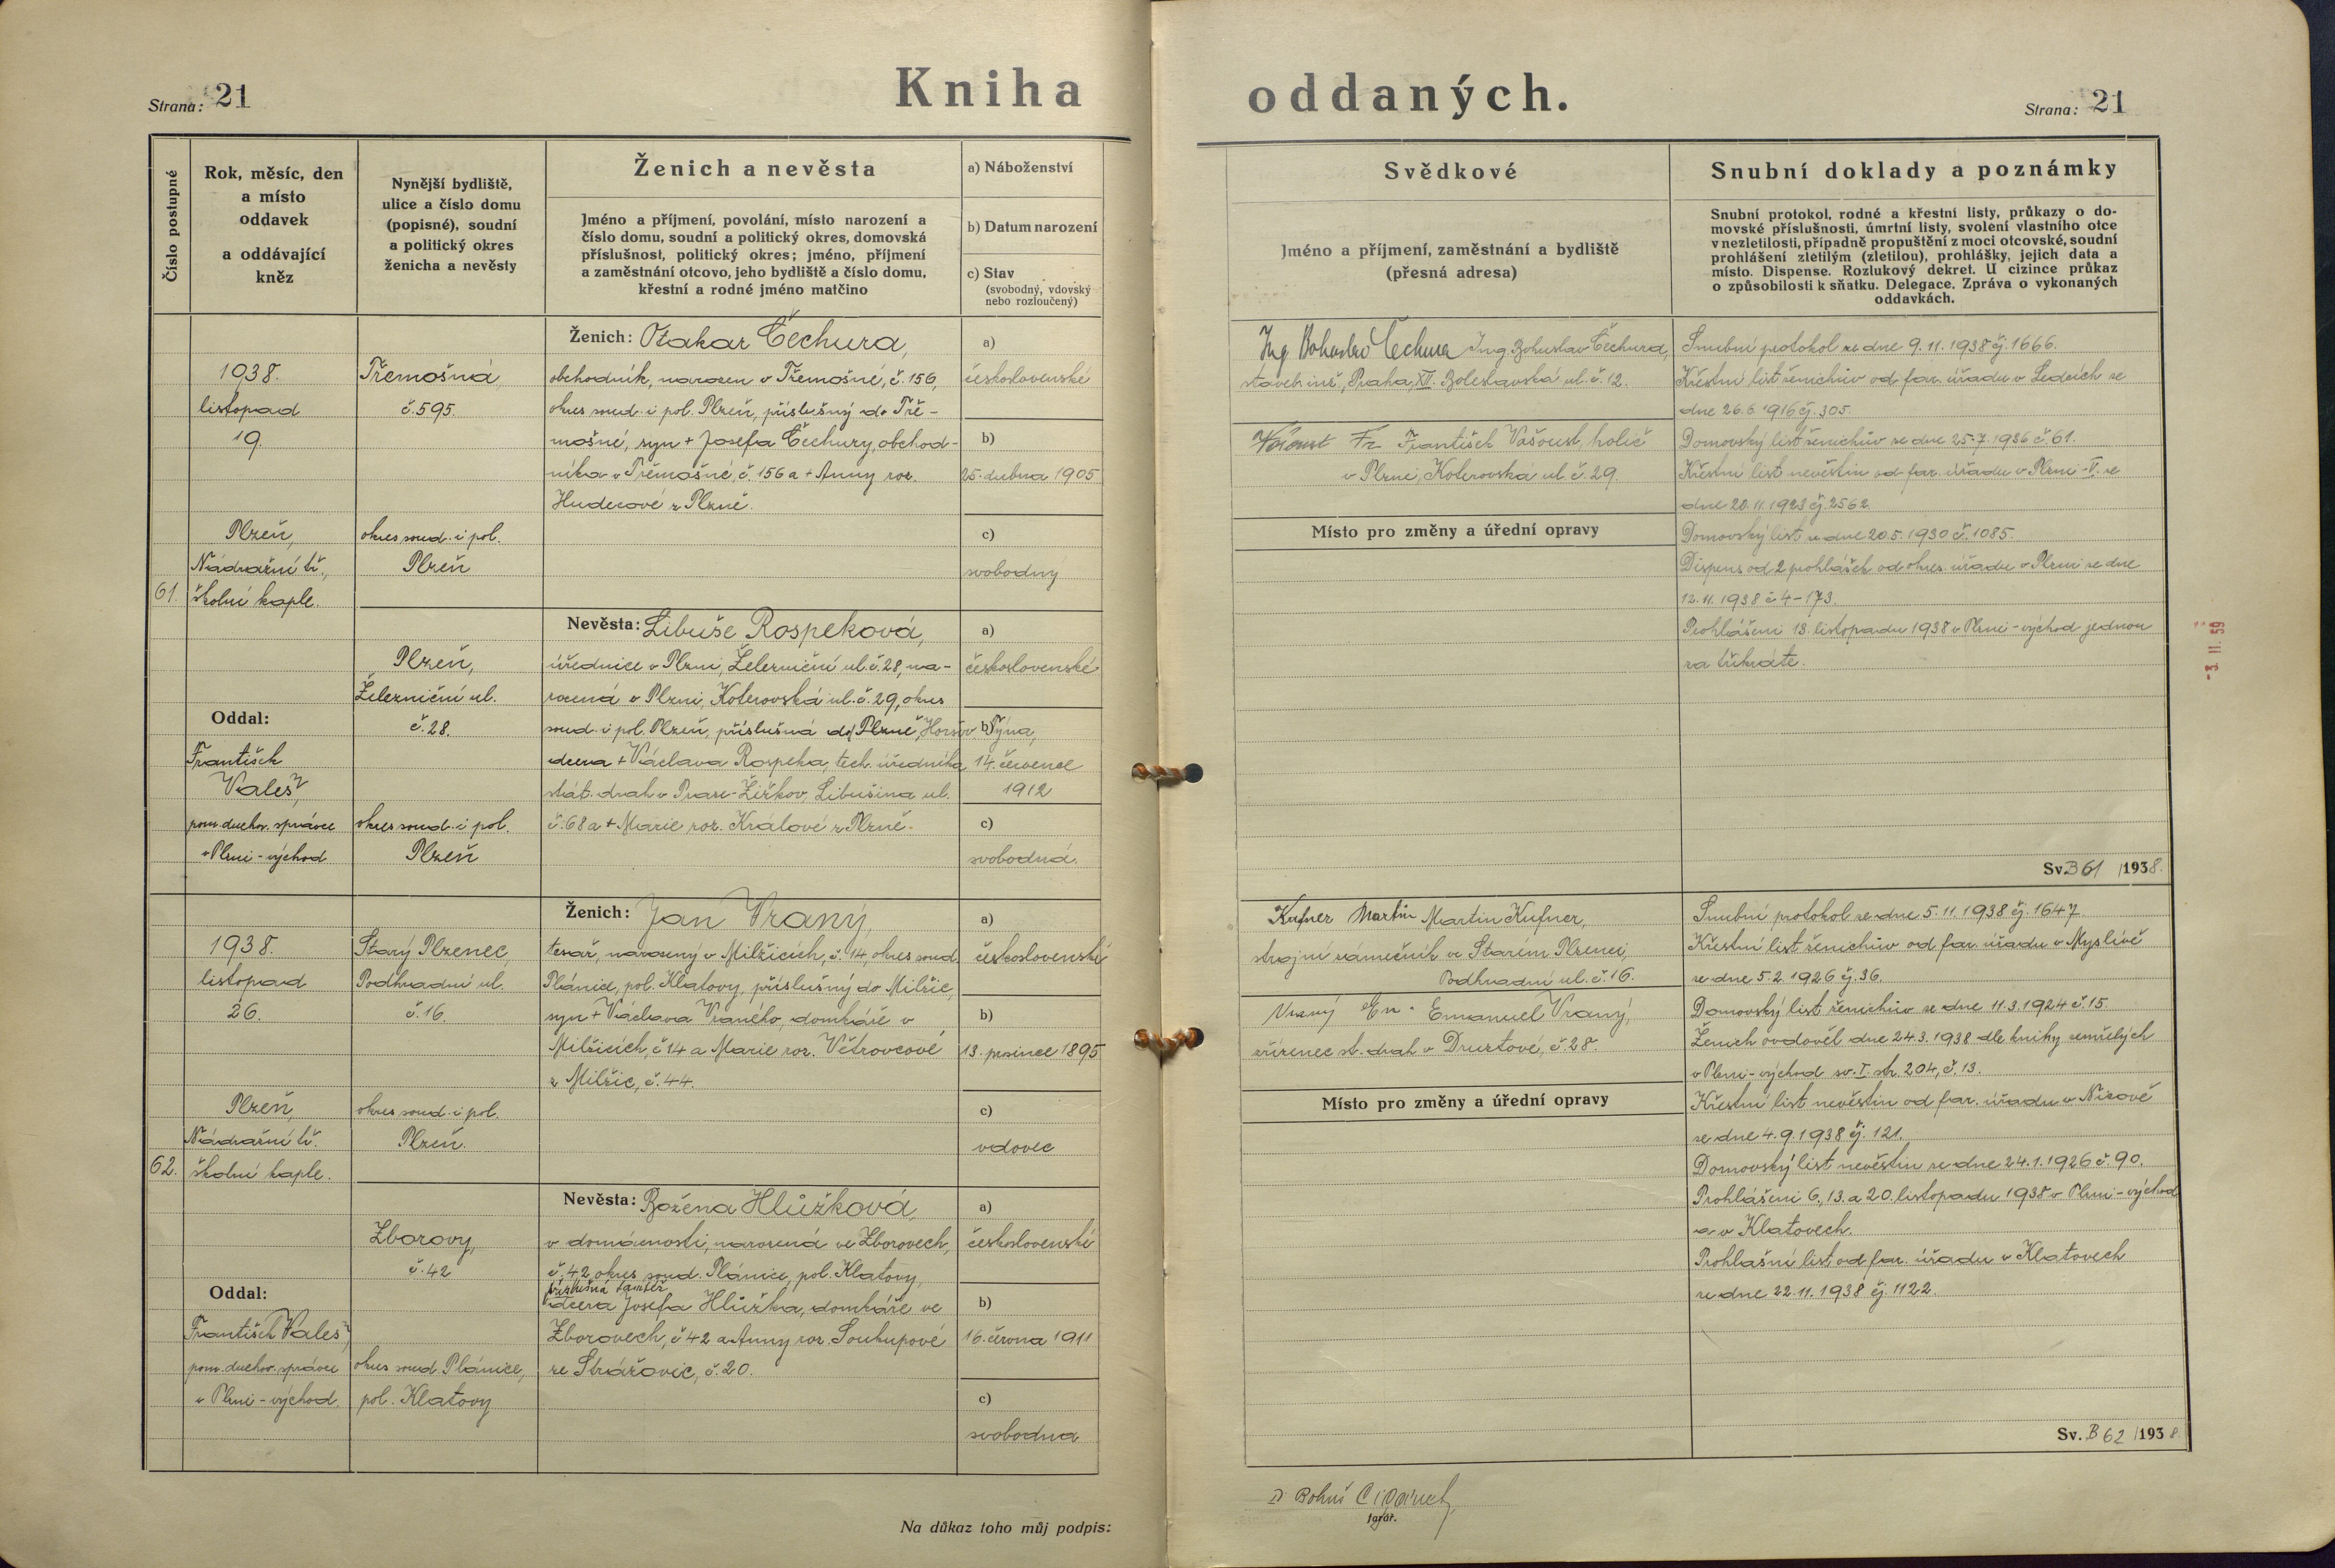 Kniha oddaných.
Strana: 21
Strana: 21
Číslo postupné
Rok, měsíc, den
a místo
oddavek
a oddávající
kněz
Nynější bydliště,
ulice a číslo domu
(popisné), soudní
a politický okres
ženicha a nevěsty
Ženich a nevěsta
Jméno a příjmení, povolání, místo narození a
číslo domu, soudní a politický okres, domovská
příslušnost, politický okres; jméno, příjmení
a zaměstnání otcovo, jeho bydliště a číslo domu,
křestní a rodné jméno matčino
a) Náboženství
b) Datum narození
c) Stav
(svobodný, vdovský
nebo rozloučený)
Svědkové
Jméno a příjmení, zaměstnání a bydliště
(přesná adresa)
Snubní doklady a poznámky
Snubní protokol, rodné a křestní listy, průkazy o do-
movské příslušnosti, úmrtní listy, svolení vlastního otce
v nezletilosti, případně propuštění z moci otcovské, soudní
prohlášení zletilým (zletilou), prohlášky, jejich data a
místo. Dispense. Rozlukový dekret. U cizince průkaz
o způsobilosti k sňatku. Delegace. Zpráva o vykonaných
oddavkách.
61.
1938.
listopad
19.
Plzeň,
Nádražní tř.,
školní kaple.
Oddal:
František
Valeš,
pom. duchov. správce
v Plzni - východ
Třemošná
č. 595.
okres soud. i pol.
Plzeň
Plzeň,
Železniční ul.
č. 28.
okres soud. i pol.
Plzeň
Ženich: Otakar Čechura,
obchodník, narozen v Třemošné, č. 156,
okres soud. i pol. Plzeň, příslušný do Tře-
mošné, syn + Josefa Čechury, obchod-
níka v Třemošné, č. 156 a + Anny roz.
Hudecové z Plzně.
Nevěsta: Libuše Rospeková,
úřednice v Plzni, Železniční ul. č. 28, na-
rozená v Plzni, Koterovská ul. č. 29, okres
soud. i pol. Plzeň, příslušná do Plzně, Horšův Týna,
dcera + Václava Rospeka, tech. úředníka
stát. drah v Praze - Žižkov, Libušina ul.
č. 68 a + Marie roz. Králové z Plzně.
a)
československé
b)
25. dubna 1905
c)
svobodný
a)
československé
b)
14. července
1912
c)
svobodná.
Ing. Bohuslav Čechura Ing. Bohuslav Čechura,
staveb. inž., Praha, XI. Boleslavská ul. č. 12.
Vašoust Fr. František Vašoust, holič
v Plzni, Koterovská ul. č. 29.
Místo pro změny a úřední opravy
Snubní protokol ze dne 9. 11. 1938 čj. 1666.
Křestní list ženichův od far. úřadu v Ledcích ze
dne 26. 6. 1916 čj. 305.
Domovský list ženichův ze dne 25. 7. 1936 č. 61.
Křestní list nevěstin od far. úřadu v Plzni - V. ze
dne 20. 11. 1923 čj. 2562
Domovský list ze dne 20. 5. 1930 č. 1085.
Dispens od 2 prohlášek od okres. úřadu v Plzni ze dne
12. 11. 1938 č 4 - 173.
Prohlášeni 13. listopadu 1938 v Plzni - východ jednou
za třikráte.
Sv. B 61 /1938.
-3. II. 59
62.
1938.
listopad
26.
Plzeň,
Nádražní tř.
školní kaple.
Oddal:
František Valeš,
pom. duchov. správce
v Plzni - východ.
Starý Plzenec
Podhradní ul.
č. 16.
okres soud. i pol.
Plzeň.
Zborovy,
č. 42
okres soud. Plánice,
pol. Klatovy
Ženich: Jan Vraný,
tesař, narozený v Milžicích, č. 14, okres soud.
Plánice, pol. Klatovy, příslušný do Milžic,
syn + Václava Vraného, domkáře v
Milžicích, č 14 a Marie roz. Větrovcové
z Milžic, č. 44.
Nevěsta: Božena Hlůžková,
v domácnosti, narozená ve Zborovech,
č. 42 okres soud. Plánice, pol. Klatovy,
příslušná tamtéž
dcera Josefa Hlůžka, domkáře ve
Zborovech, č 42 a Anny roz. Soukupové
ze Strážovic, č. 20.
a)
československé
b)
13. prosince 1895
c)
vdovec
a)
československé
b)
16. června 1911
c)
svobodná
Kufner Martin Martin Kufner,
strojní zámečník ve Starém Plzenci,
Podhradní ul. č. 16.
Vraný Em. Emanuel Vraný,
zřízenec st. drah v Druztové, č. 28.
Místo pro změny a úřední opravy
Snubní protokol ze dne 5. 11. 1938 čj. 1647
Křestní list ženichův od far. úřadu v Myslívě
ze dne 5. 2. 1926 čj. 36.
Domovský list ženichův ze dne 11. 3. 1924 č. 15.
Ženich ovdověl dne 24. 3. 1938 dle knihy zemřelých
v Plzni - východ sv. I. str. 204, č. 13.
Křestní list nevěstin od far. úřadu v Nicově
ze dne 4. 9. 1938 čj. 121.
Domovský list nevěstin ze dne 24. 1. 1926 č. 90.
Prohlášeni 6., 13. a 20. listopadu 1938 v Plzni - východ
a v Klatovech.
Prohlašní list od far. úřadu v Klatovech
ze dne 22. 11. 1938 čj. 1122.
Sv. B 62 /1938
Na důkaz toho můj podpis:
farář.